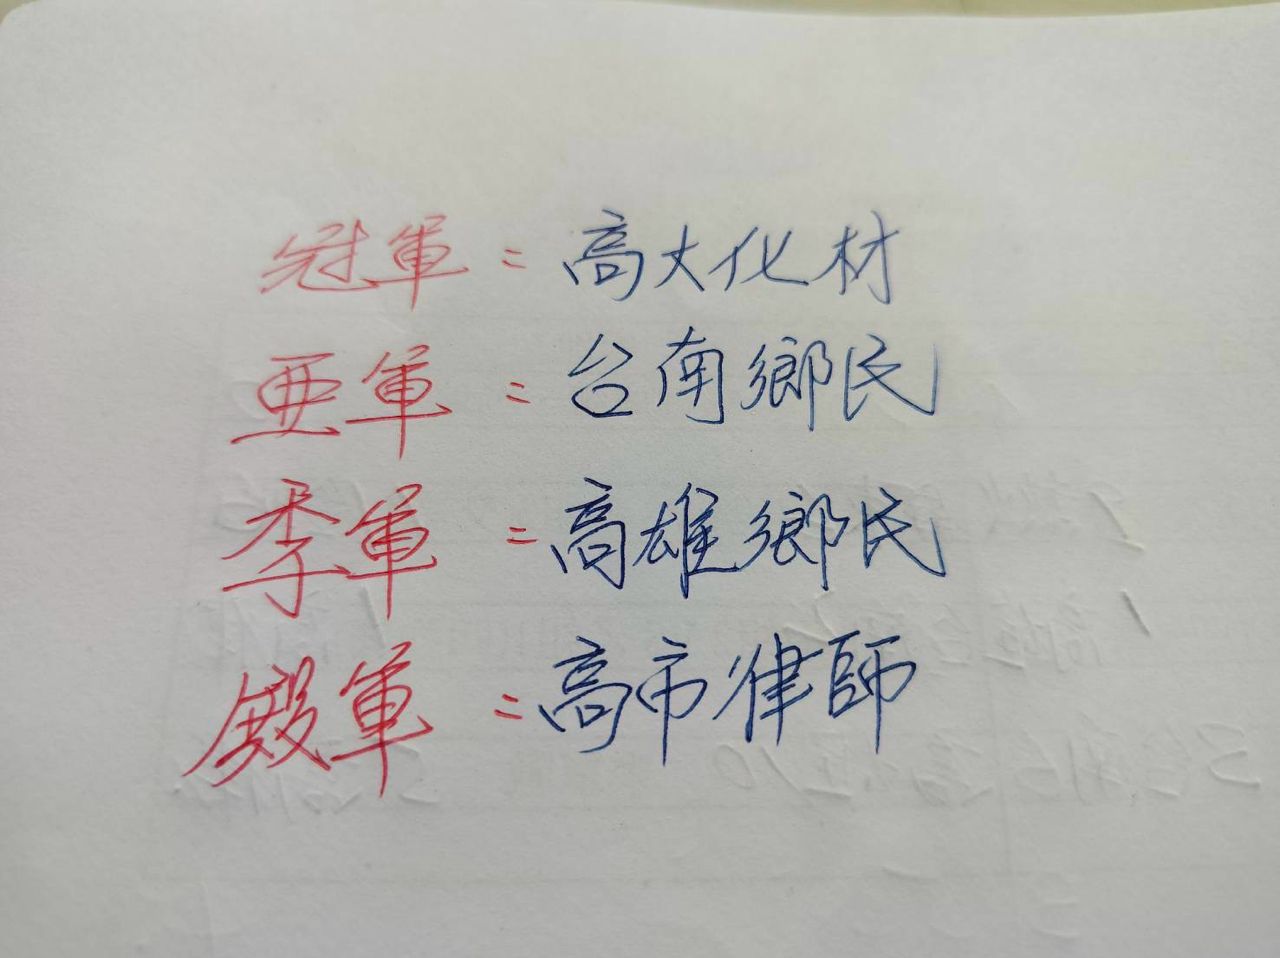 冠軍：高大化材
亞軍：台南鄉民
季軍：高雄鄉民
殿軍：高市律師